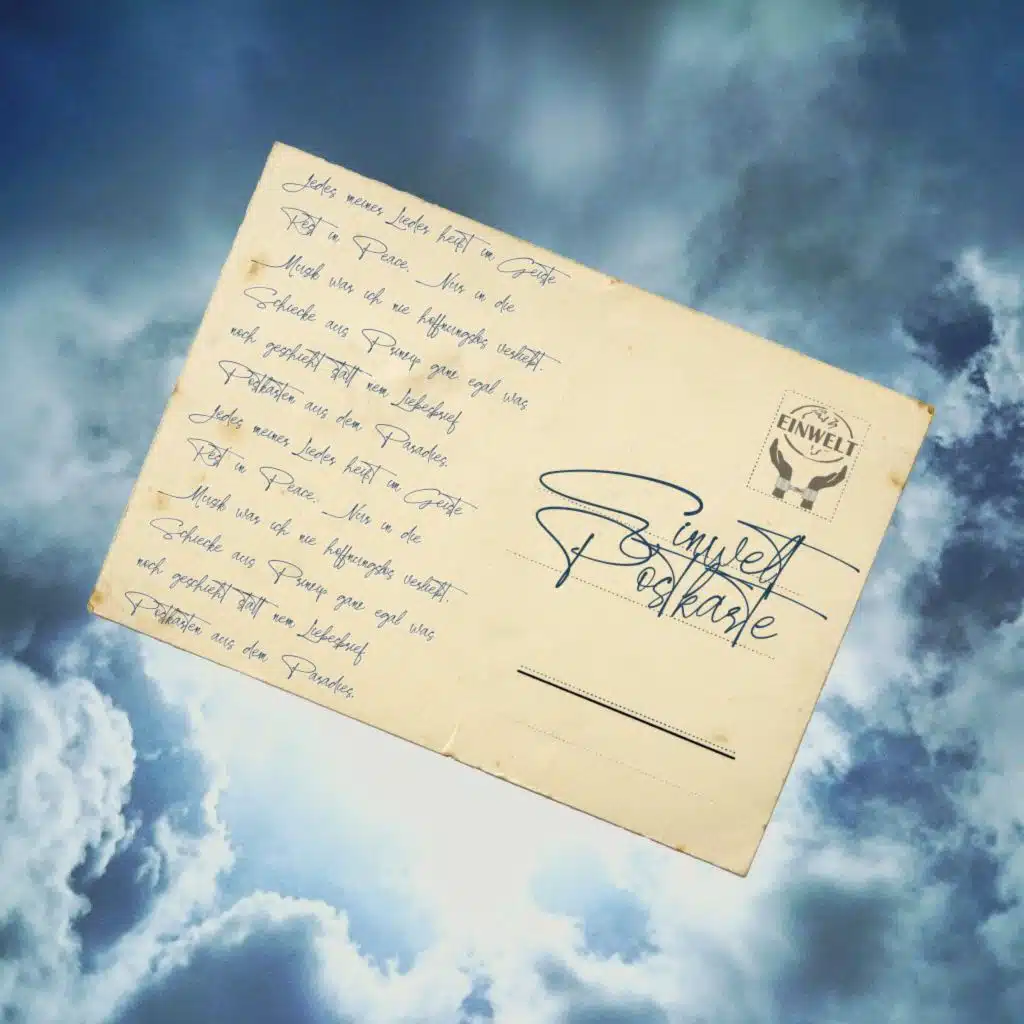 Jedes meiner Lieder heißt im Geiste
Rest in Peace. Nur in die
Musik war ich nie hoffnungslos verliebt.
Schicke aus Prinzip ganz egal was
noch geschieht statt nem Liebesbrief
Postkarten aus dem Paradies.
Jedes meiner Lieder heißt im Geiste
Rest in Peace. Nur in die
Musik war ich nie hoffnungslos verliebt.
Schicke aus Prinzip ganz egal was
noch geschieht statt nem Liebesbrief
Postkarten aus dem Paradies.
EINWELT
Einwelt
Postkarte